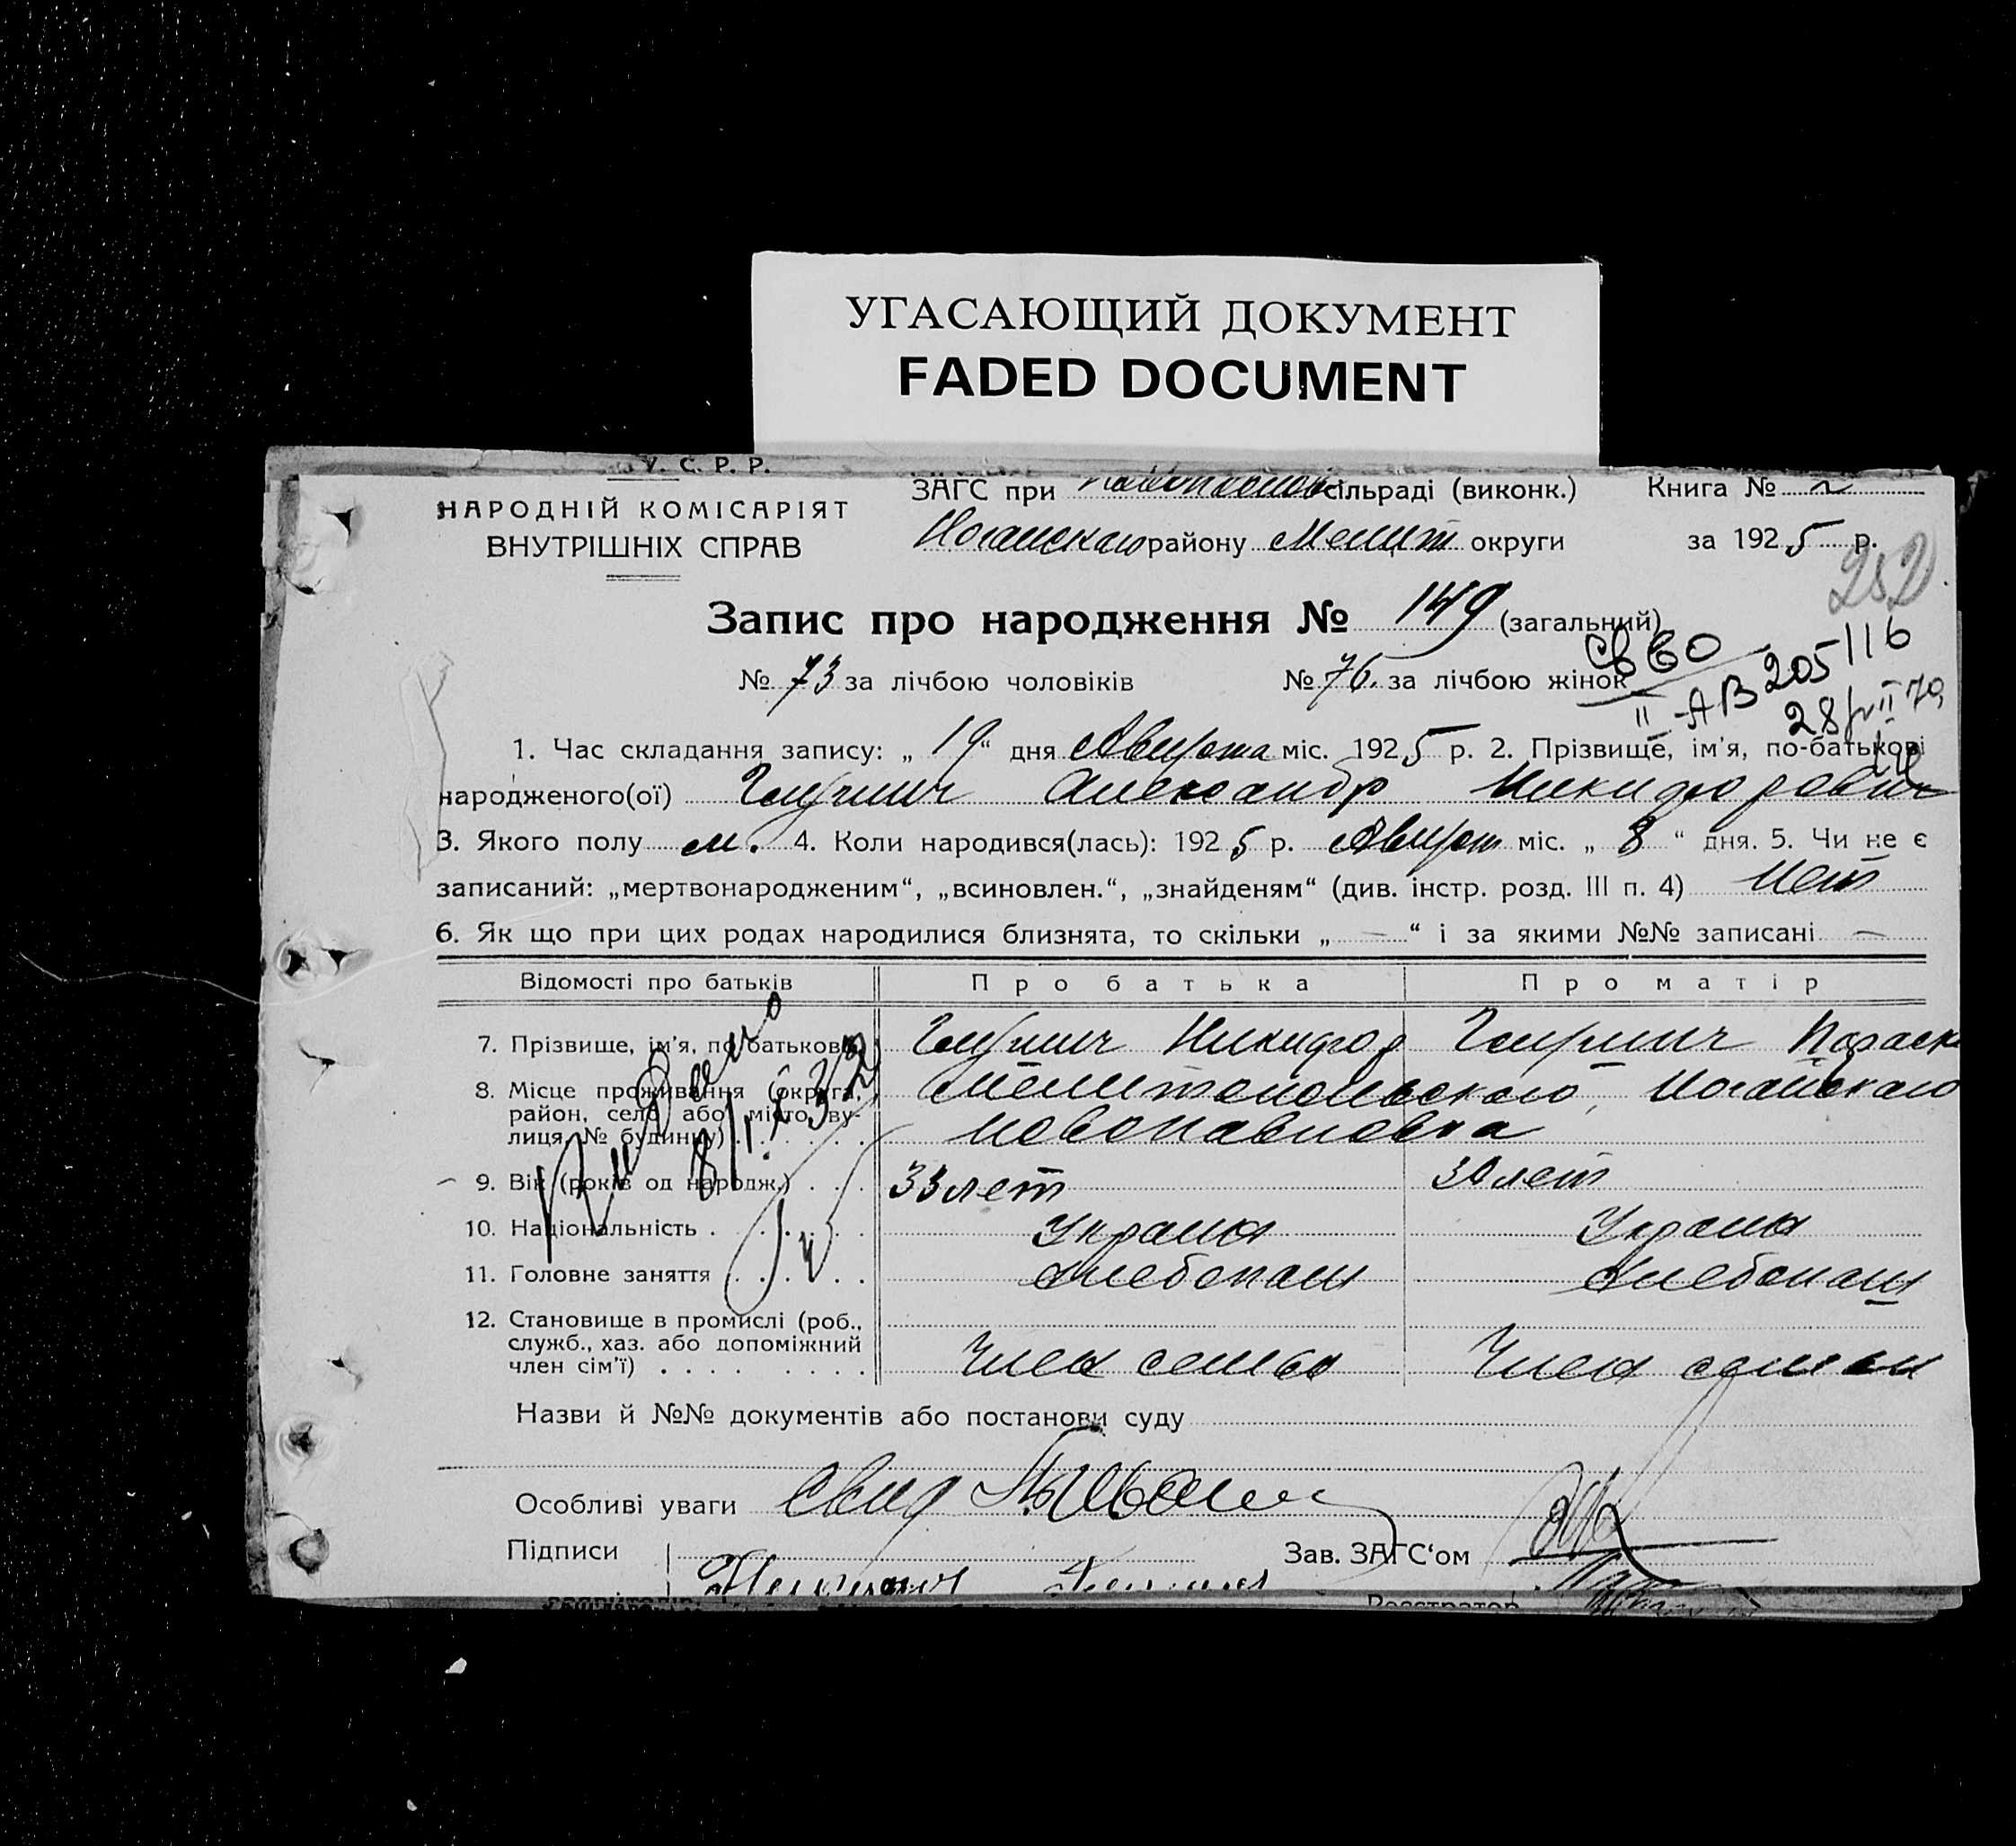 УГАСАЮЩИЙ ДОКУМЕНТ
FADED DOCUMENT
У. С. Р. Р.
НАРОДНІЙ КОМІСАРІЯТ
ВНУТРІШНІХ СПРАВ
ЗАГС при сільраді (виконк.)
Книга № 2
Ногайскаго району Мелит округи
за 1925 р.
252
Запис про народження № 149 (загальний)
№ 73 за лічбою чоловіків № 76. за лічбою жінок
II-АВ 205116
1. Час складання запису: „ 19 “ дня Августа міс. 1925 р. 2. Прізвище, ім'я, по-батькові
народженого(ої) Александр Никифорович
3. Якого полу м. 4. Коли народився(лась): 1925 р. Август міс. „ 8 “ дня. 5. Чи не є
записаний: „мертвонародженим“, „всиновлен.“, „знайденям“ (див. інстр. розд. III п. 4) Нет
6. Як що при цих родах народилися близнята, то скільки „ — “ і за якими №№ записані —
Відомості про батьків Про батька Про матір
7. Прізвище, ім'я, по батькові Никифор Параск
8. Місце проживання (округа, Мелитопольскаго, Ногайскаго
район, село або місто, ву-
лиця, № будинку) Новопавловка
9. Вік (років од народж.) 33 лет 30 лет
10. Національність Украин Украин
11. Головне заняття Хлебопаш Хлебопаш
12. Становище в промислі (роб.,
служб., хаз. або допоміжний
член сім'ї) Член семьи Член семьи
Назви й №№ документів або постанови суду
Особливі уваги
Підписи
Зав. ЗАГС'ом
Реєстратор